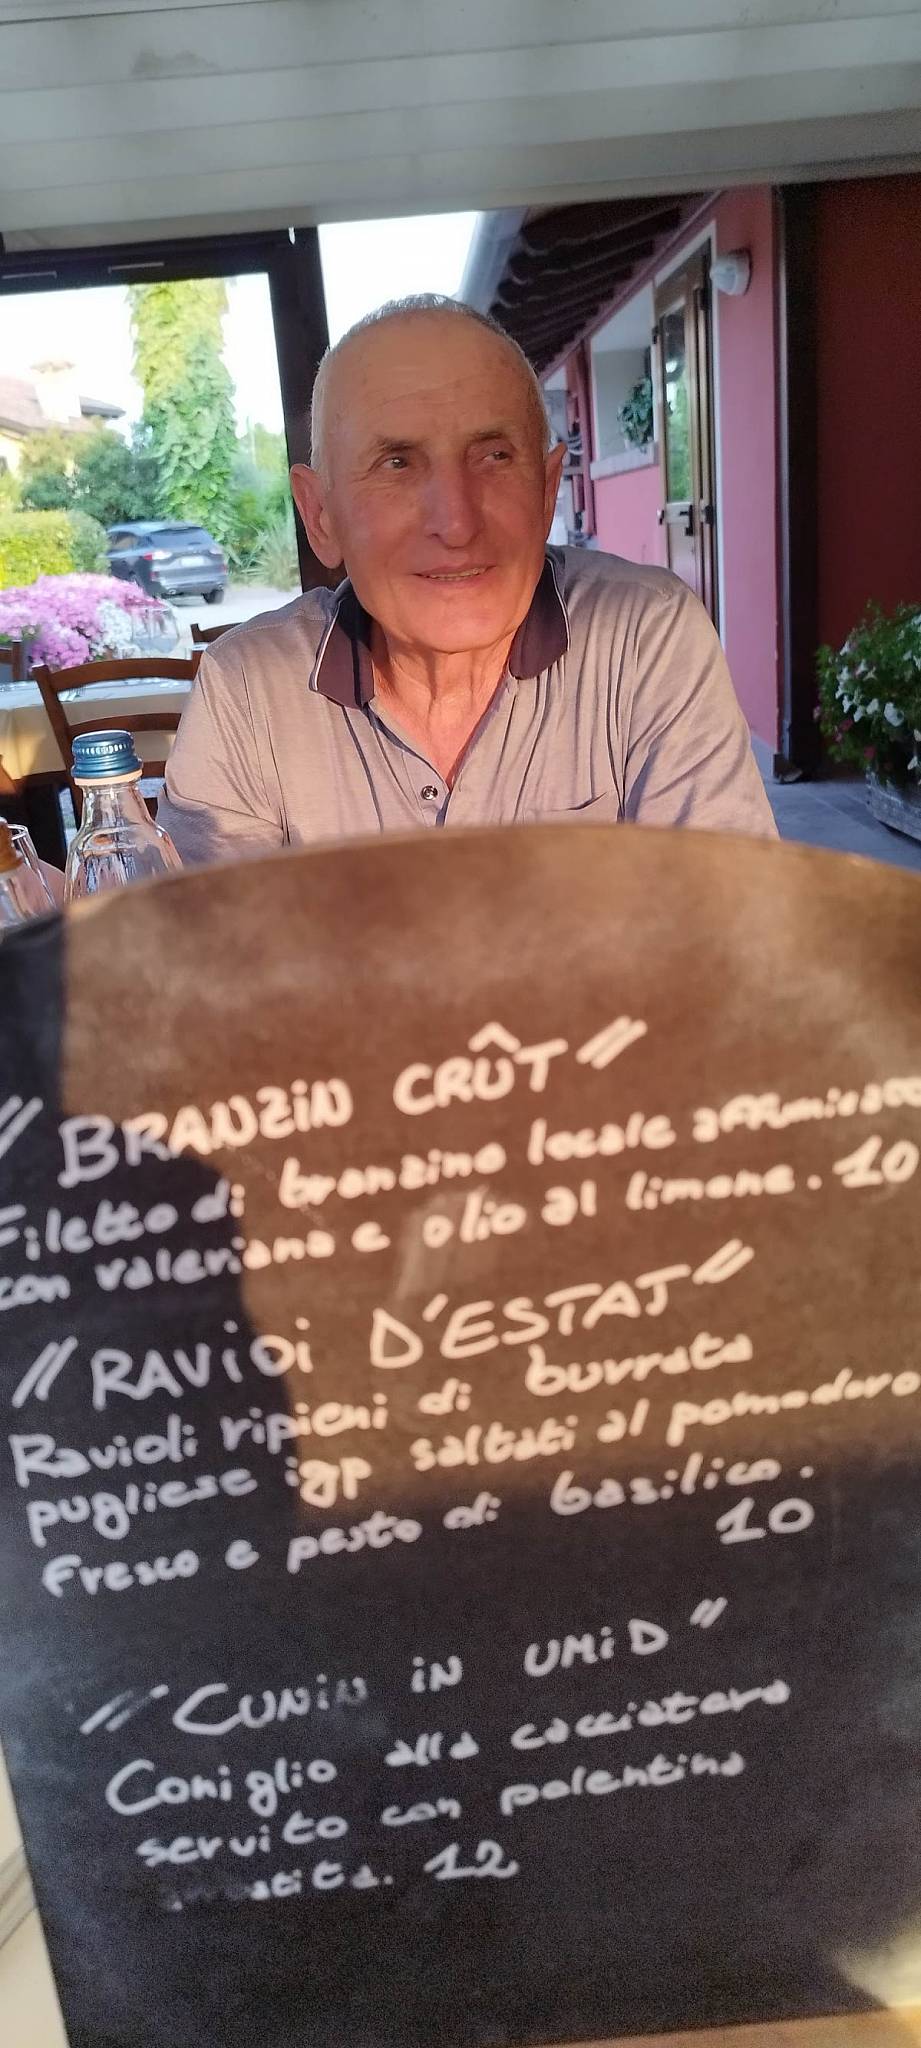 "BRANZIN CRÛT"
Filetto di branzino locale affumicato
con valeriana e olio al limone. 10
"RAVIOI D'ESTAT"
Ravioli ripieni di burrata
pugliese igp saltati al pomodoro
fresco e pesto di basilico.
10
"CUNIN IN UMID"
Coniglio alla cacciatora
servito con polentina
12